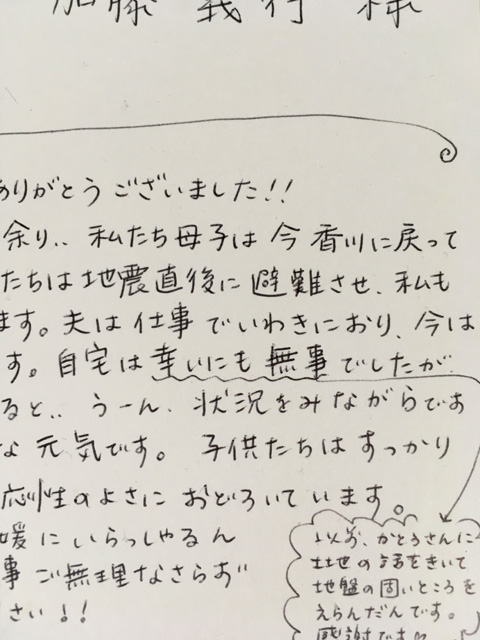 加藤 義行 様
ありがとうございました!!
余り.. 私たち母子は今香川に戻って
たちは地震直後に避難させ、私も
ます。夫は仕事でいわきにおり、今は
す。自宅は幸いにも無事でしたが
ると.. うーん、状況をみながらです
な元気です。 子供たちはすっかり
応性のよさにおどろいています。
媛にいらっしゃるん
事ご無理なさらず
さい!!
以前、かとうさんに
土地の話をきいて
地盤の固いところを
えらんだんです。
感謝です